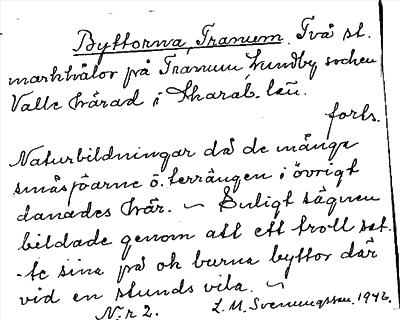 Byttorna, Tranum. Två st.
markhålor på Tranum, Lundby socken
Valle härad i Skarab. län.
forts.
Naturbildningar då de många
småsjöarne o. terrängen i övrigt
danades här. ~ Enligt sägnen
bildade genom att ett troll sat-
-te sina på ok burna byttor där
vid en stunds vila. ~
N:r 2. L. M. Svenungsson. 1942.